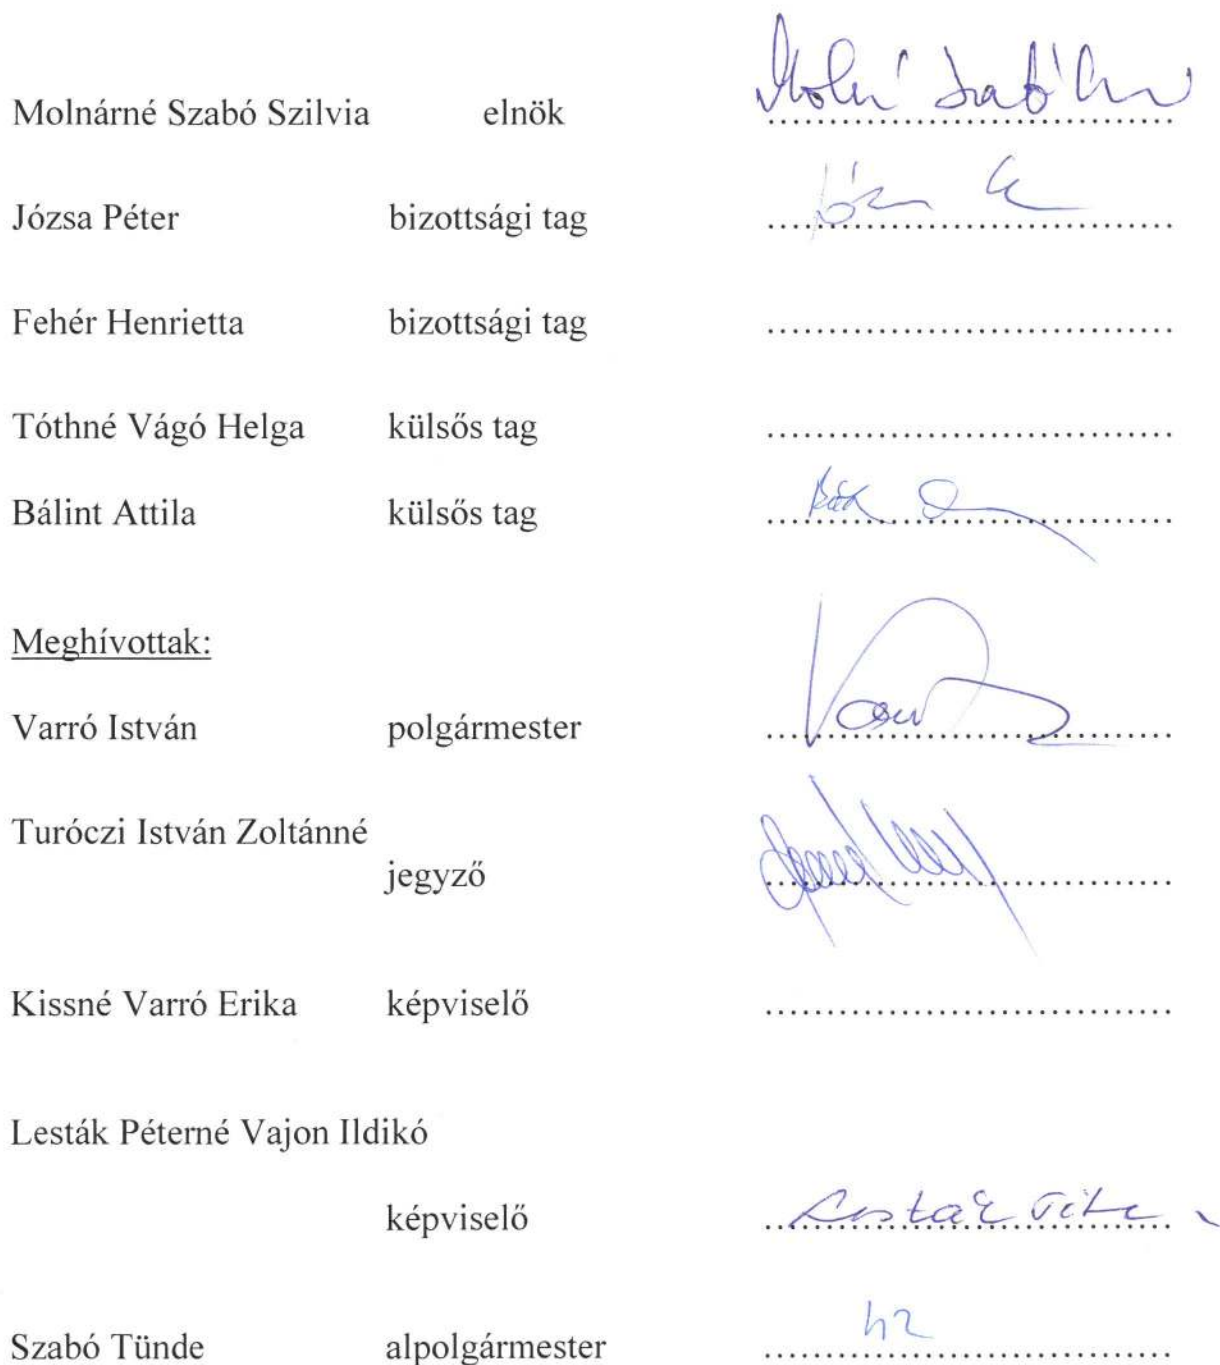 Molnárné Szabó Szilvia elnök ................................
Józsa Péter bizottsági tag ................................
Fehér Henrietta bizottsági tag ................................
Tóthné Vágó Helga külsős tag ................................
Bálint Attila külsős tag ................................
Meghívottak:
Varró István polgármester ................................
Turóczi István Zoltánné
jegyző ................................
Kissné Varró Erika képviselő ................................
Lesták Péterné Vajon Ildikó
képviselő ................................
Szabó Tünde alpolgármester ................................